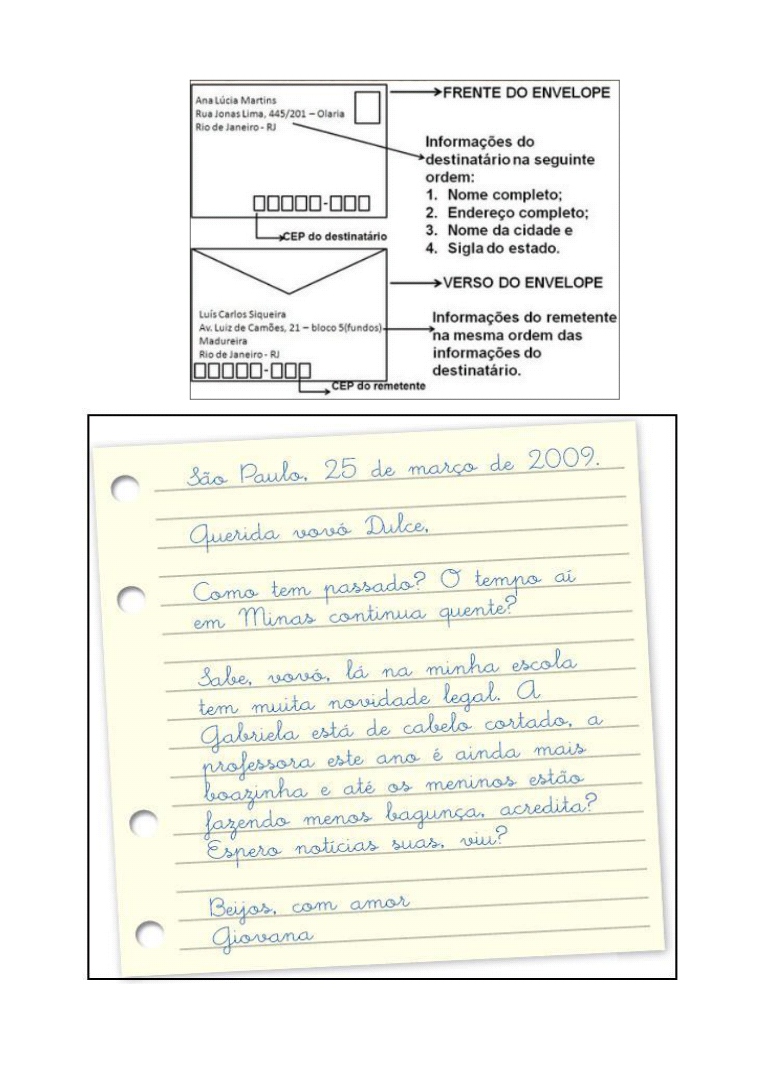 Ana Lúcia Martins
Rua Jonas Lima, 445/201 – Olaria
Rio de Janeiro - RJ
CEP do destinatário
FRENTE DO ENVELOPE
Informações do
destinatário na seguinte
ordem:
1. Nome completo;
2. Endereço completo;
3. Nome da cidade e
4. Sigla do estado.
VERSO DO ENVELOPE
Luís Carlos Siqueira
Av. Luiz de Camões, 21 – bloco 5(fundos)
Madureira
Rio de Janeiro - RJ
CEP do remetente
Informações do remetente
na mesma ordem das
informações do
destinatário.
São Paulo, 25 de março de 2009.
Querida vovó Dulce,
Como tem passado? O tempo aí
em Minas continua quente?
Sabe, vovó, lá na minha escola
tem muita novidade legal. A
Gabriela está de cabelo cortado, a
professora este ano é ainda mais
boazinha e até os meninos estão
fazendo menos bagunça, acredita?
Espero notícias suas, viu?
Beijos, com amor
Giovana